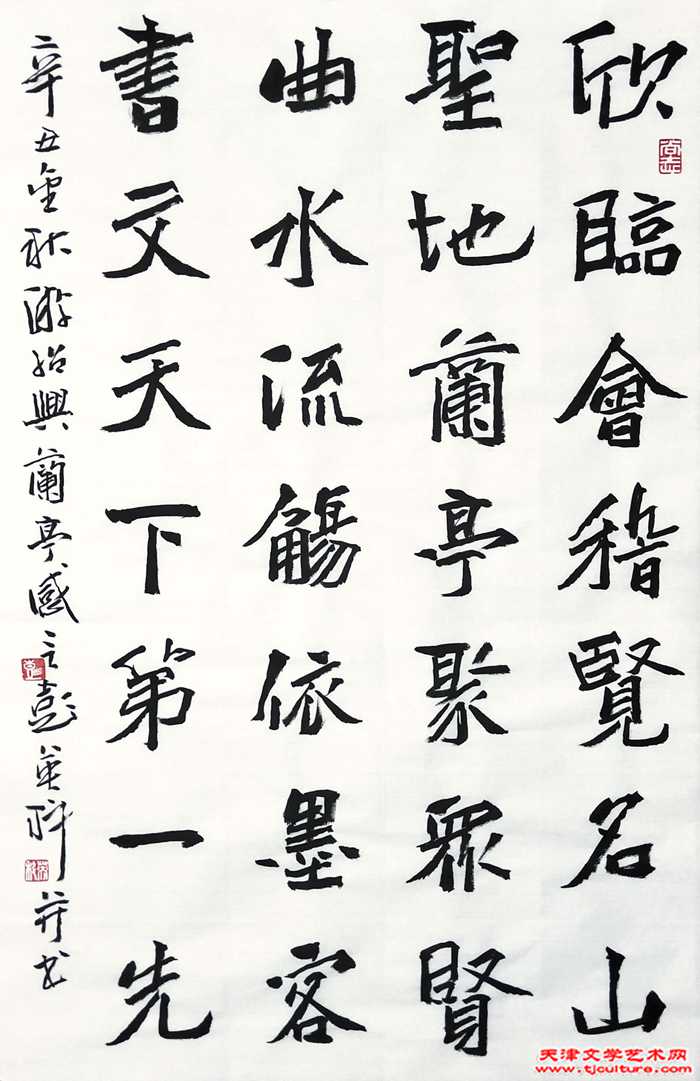 欣臨會稽覽名山
聖地蘭亭聚眾賢
曲水流觴依墨客
書文天下第一先
辛丑金秋游紹興蘭亭感之彭英科并书
天津文学艺术网
www.tjculture.com